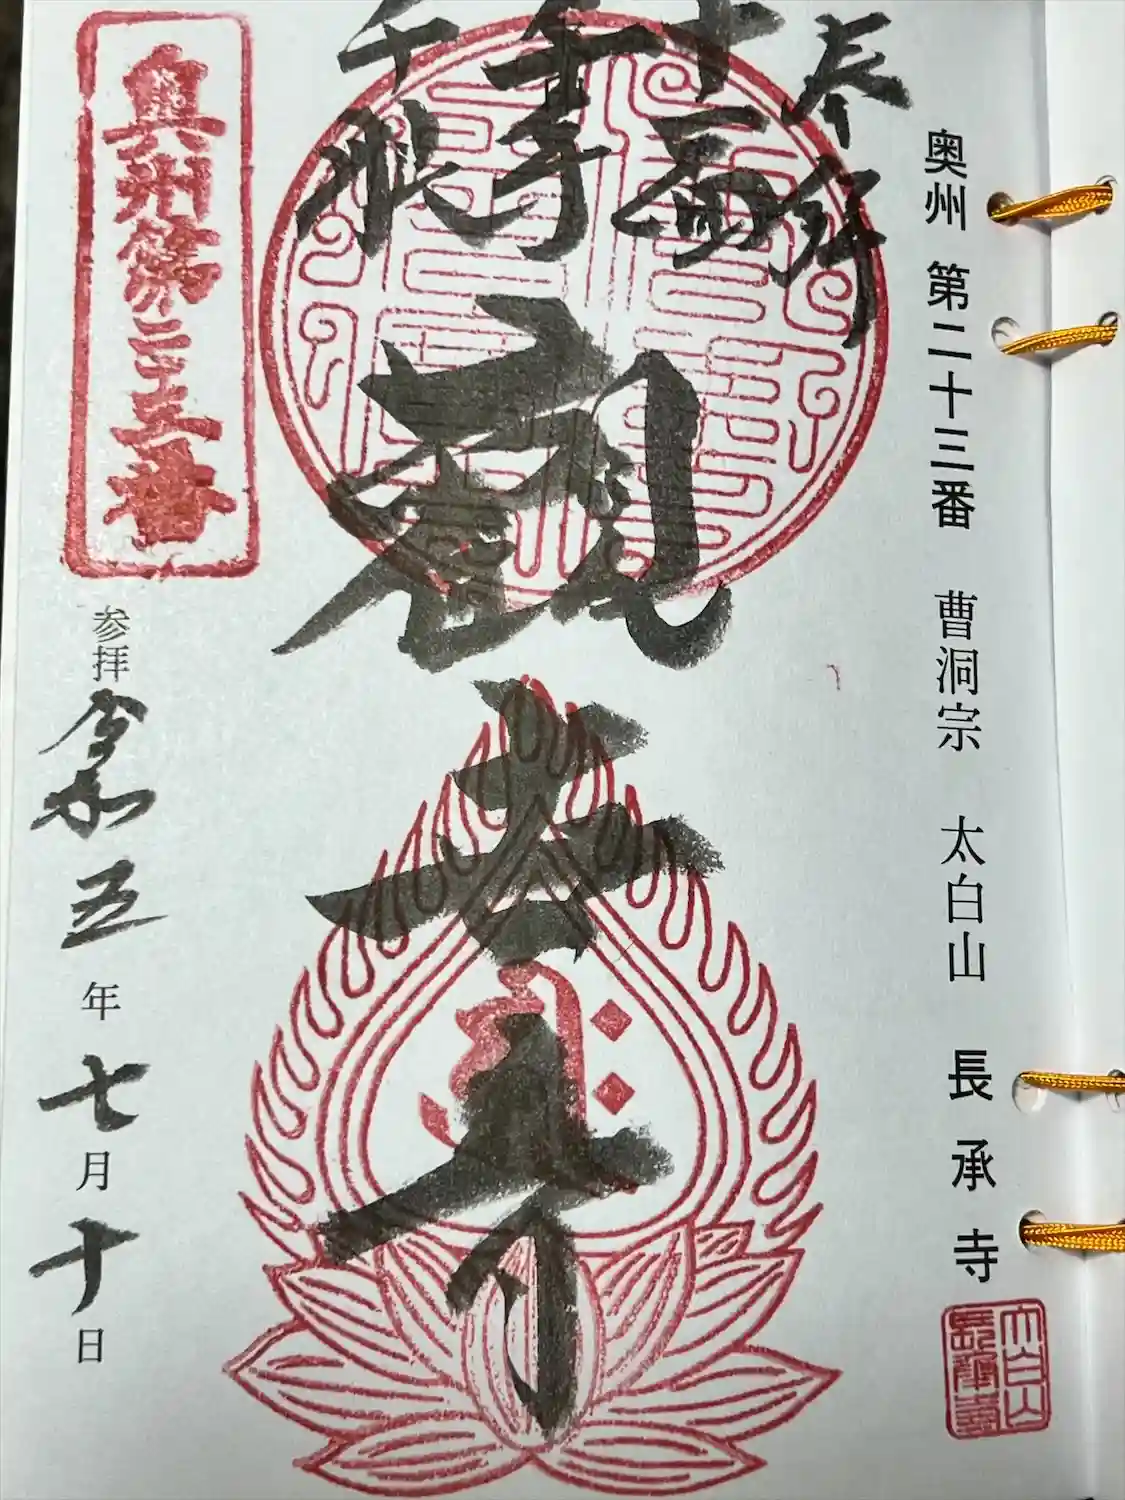 奥州 第二十三番 曹洞宗 太白山 長承寺
太白山
長承寺
奉拝
十一面
千手
千眼
観
音
寺
奥州第二十三番
参拝 令和五年七月十日